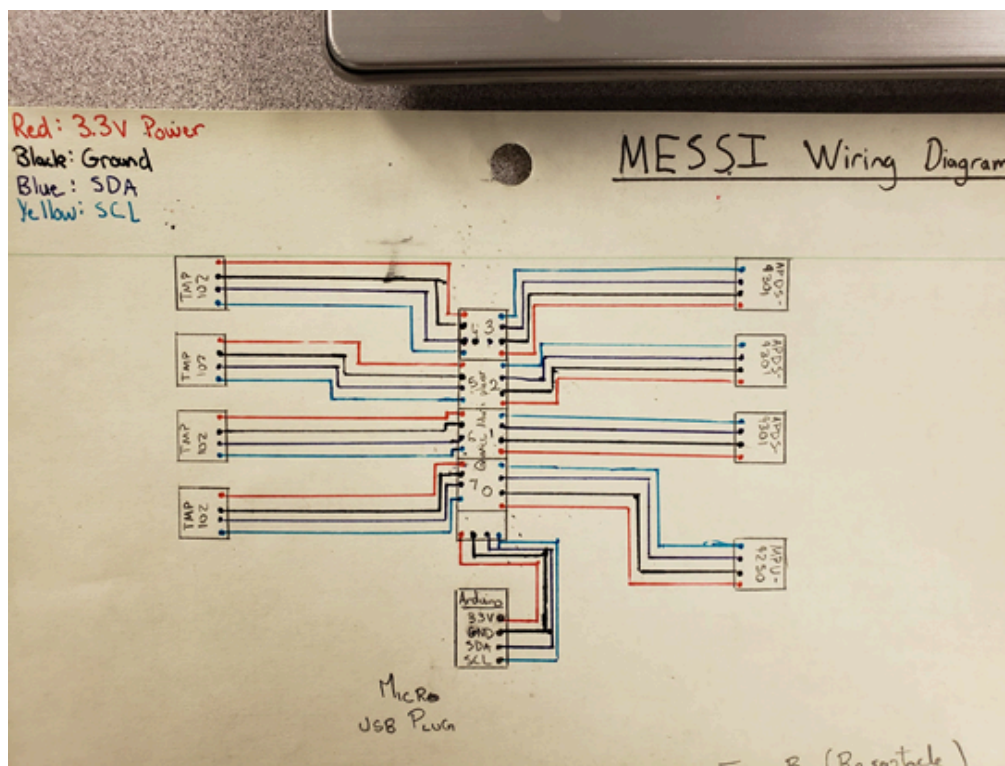 Red: 3.3V Power
Black: Ground
Blue: SDA
Yellow: SCL
MESSI Wiring Diagram
TMP
102
TMP
102
TMP
102
TMP
102
3
5
2
1
7
0
APDS-
9301
APDS-
9301
APDS-
9301
MPU-
9250
Arduino
3.3V
GND
SDA
SCL
MICRO
USB PLUG
B (Receptacle)